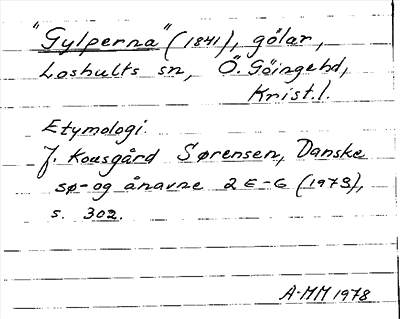 "Gylperna" (1841), gölar,
Loshults sn, Ö. Göingehd,
Krist.l.
Etymologi.
J. Kousgård Sørensen, Danske
sø- og ånavne 2 E-G (1973),
s. 302.
A-MM 1978